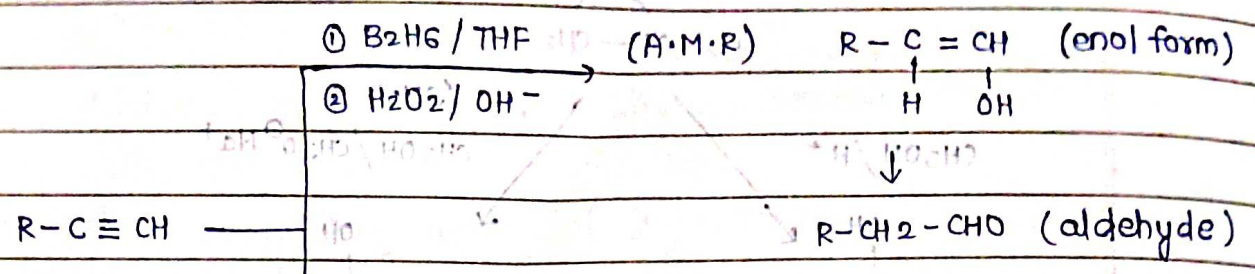 ① B2H6 / THF (A.M.R) R - C = CH (enol form)
② H2O2 / OH- H OH
↓
R-C ≡ CH R-CH2-CHO (aldehyde)